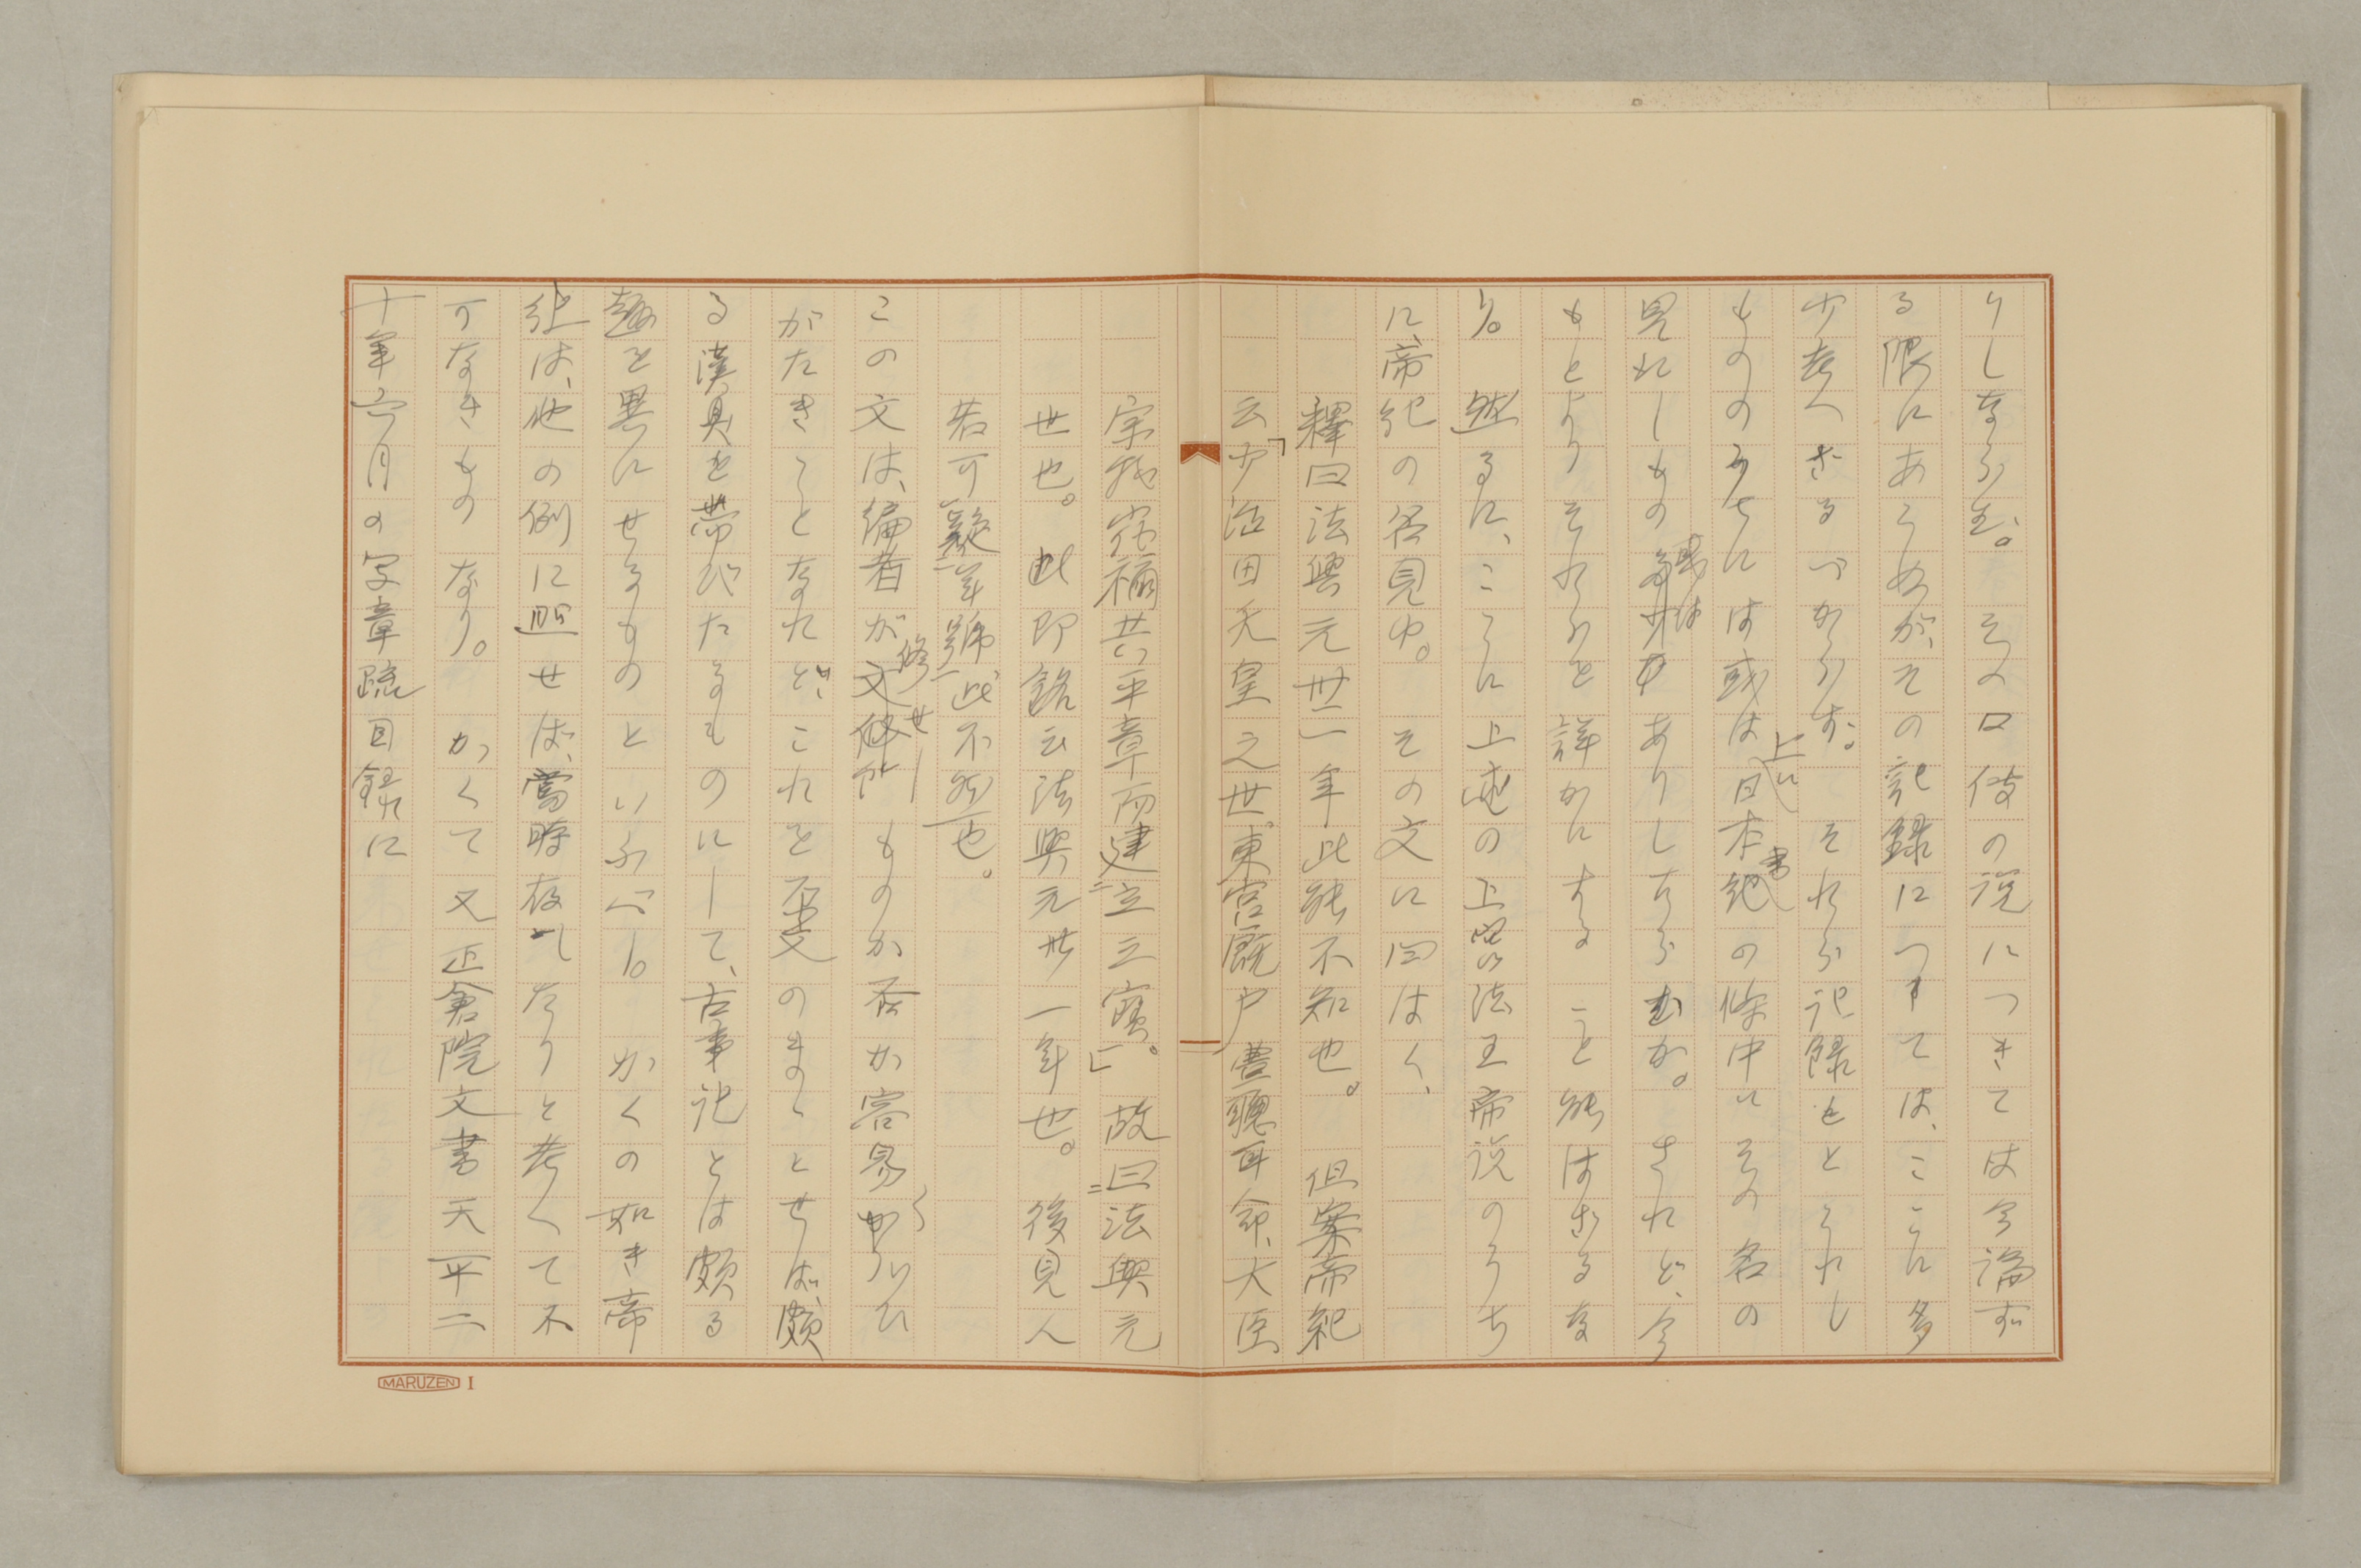 りしならむ。その口伝の説につきては今論ず
る限にあらぬが、その記録につきては、ここに多
少考へざるべからず。それら記録をとられし
もののうちには或は上に日本書紀の條中にその名の
見れしもの或はありしならむか。されど、今
もとよりそれらを詳かにすること能はざるな
り。然るに、ここに上述の上宮法王帝説のうち
に、帝紀の名見ゆ。その文に曰はく、
釋曰法興元世一年此能不知也。但案帝紀
云「少治田天皇之世、東宮厩戸豊聰耳命、大臣
宗我馬子宿禰共平章而建立三寶。」故曰法興元
世也。此即銘云法興元世一年也。後見人
若可疑年號此不然也。
この文は、編者が修せしものか否か容易くうかゞひ
がたきことなれど、これを不變のまゝとせば、頗
る漢臭を帯びたるものにして、古事記とは頗る
趣を異にせるものといふべし。かくの如き帝
紀は、他の例に照せば、當時存したりと考へて不
可なきものなり。かくて又正倉院文書天平二
十年六月の写章疏目録に
MARUZEN I